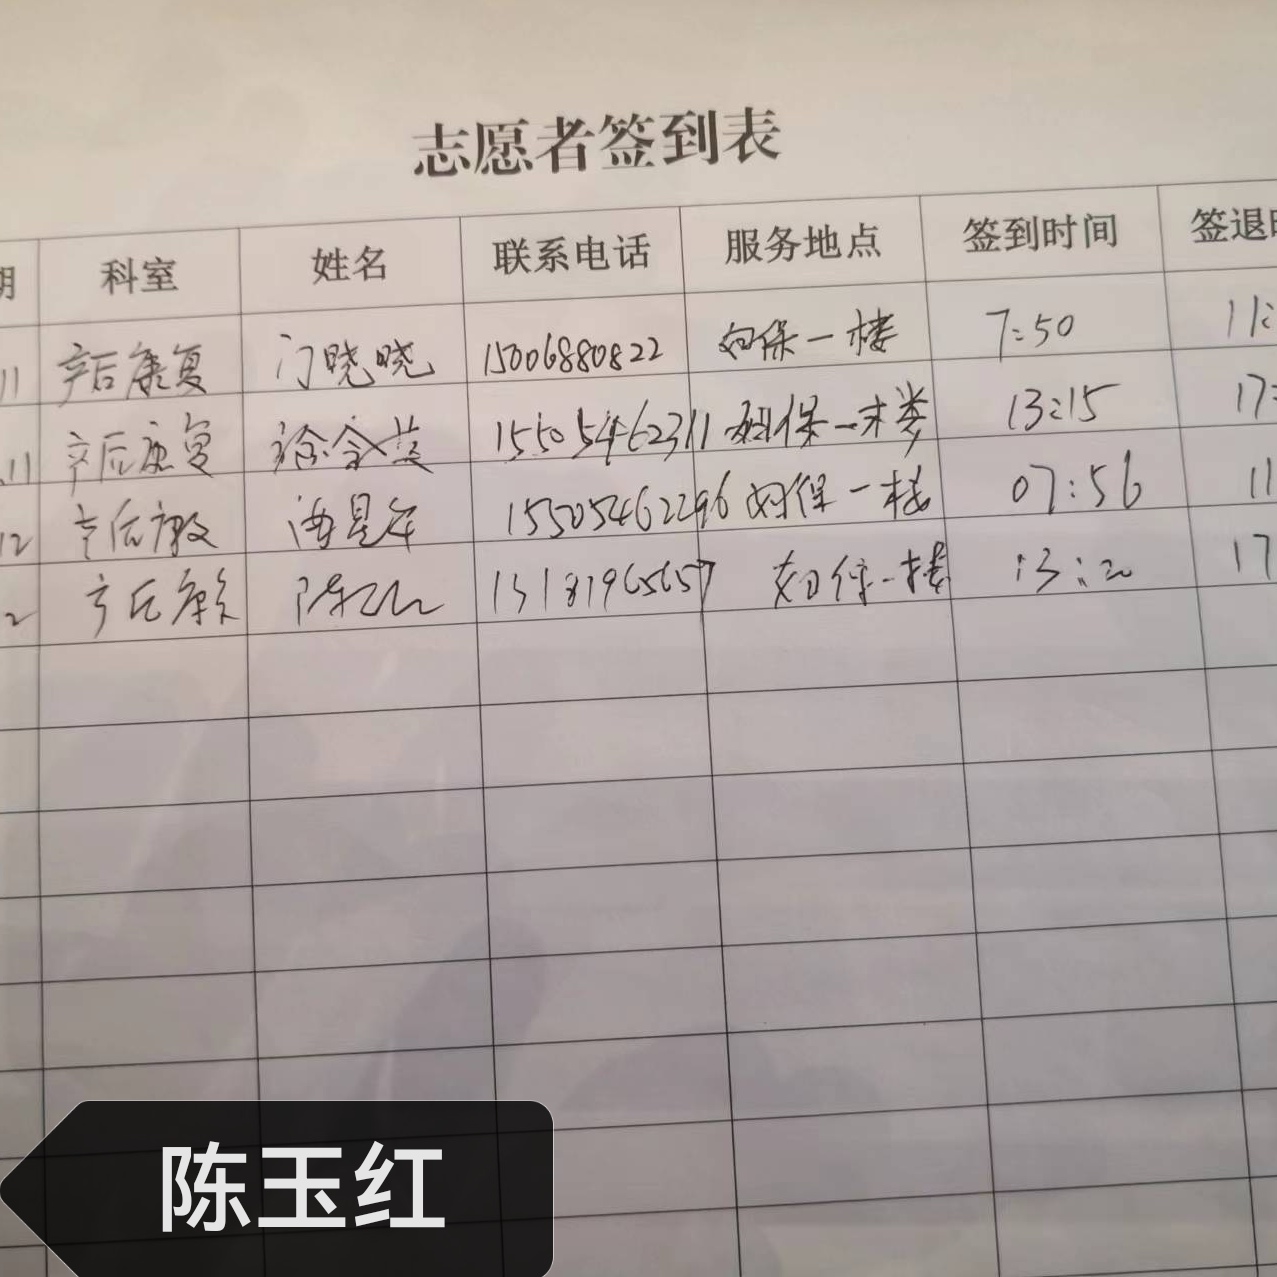 志愿者签到表
期 科室 姓名 联系电话 服务地点 签到时间 签退时
11 产后康复 门晓晓 15006880822 妇保一楼 7:50 11:
.11 产后康复 徐金 15505462311 妇保一楼 13:15 17:
12 产后康复 15505462296 妇保一楼 07:56 11
2 产后康复 陈玉红 13181965657 妇保一楼 13:20 17
陈玉红